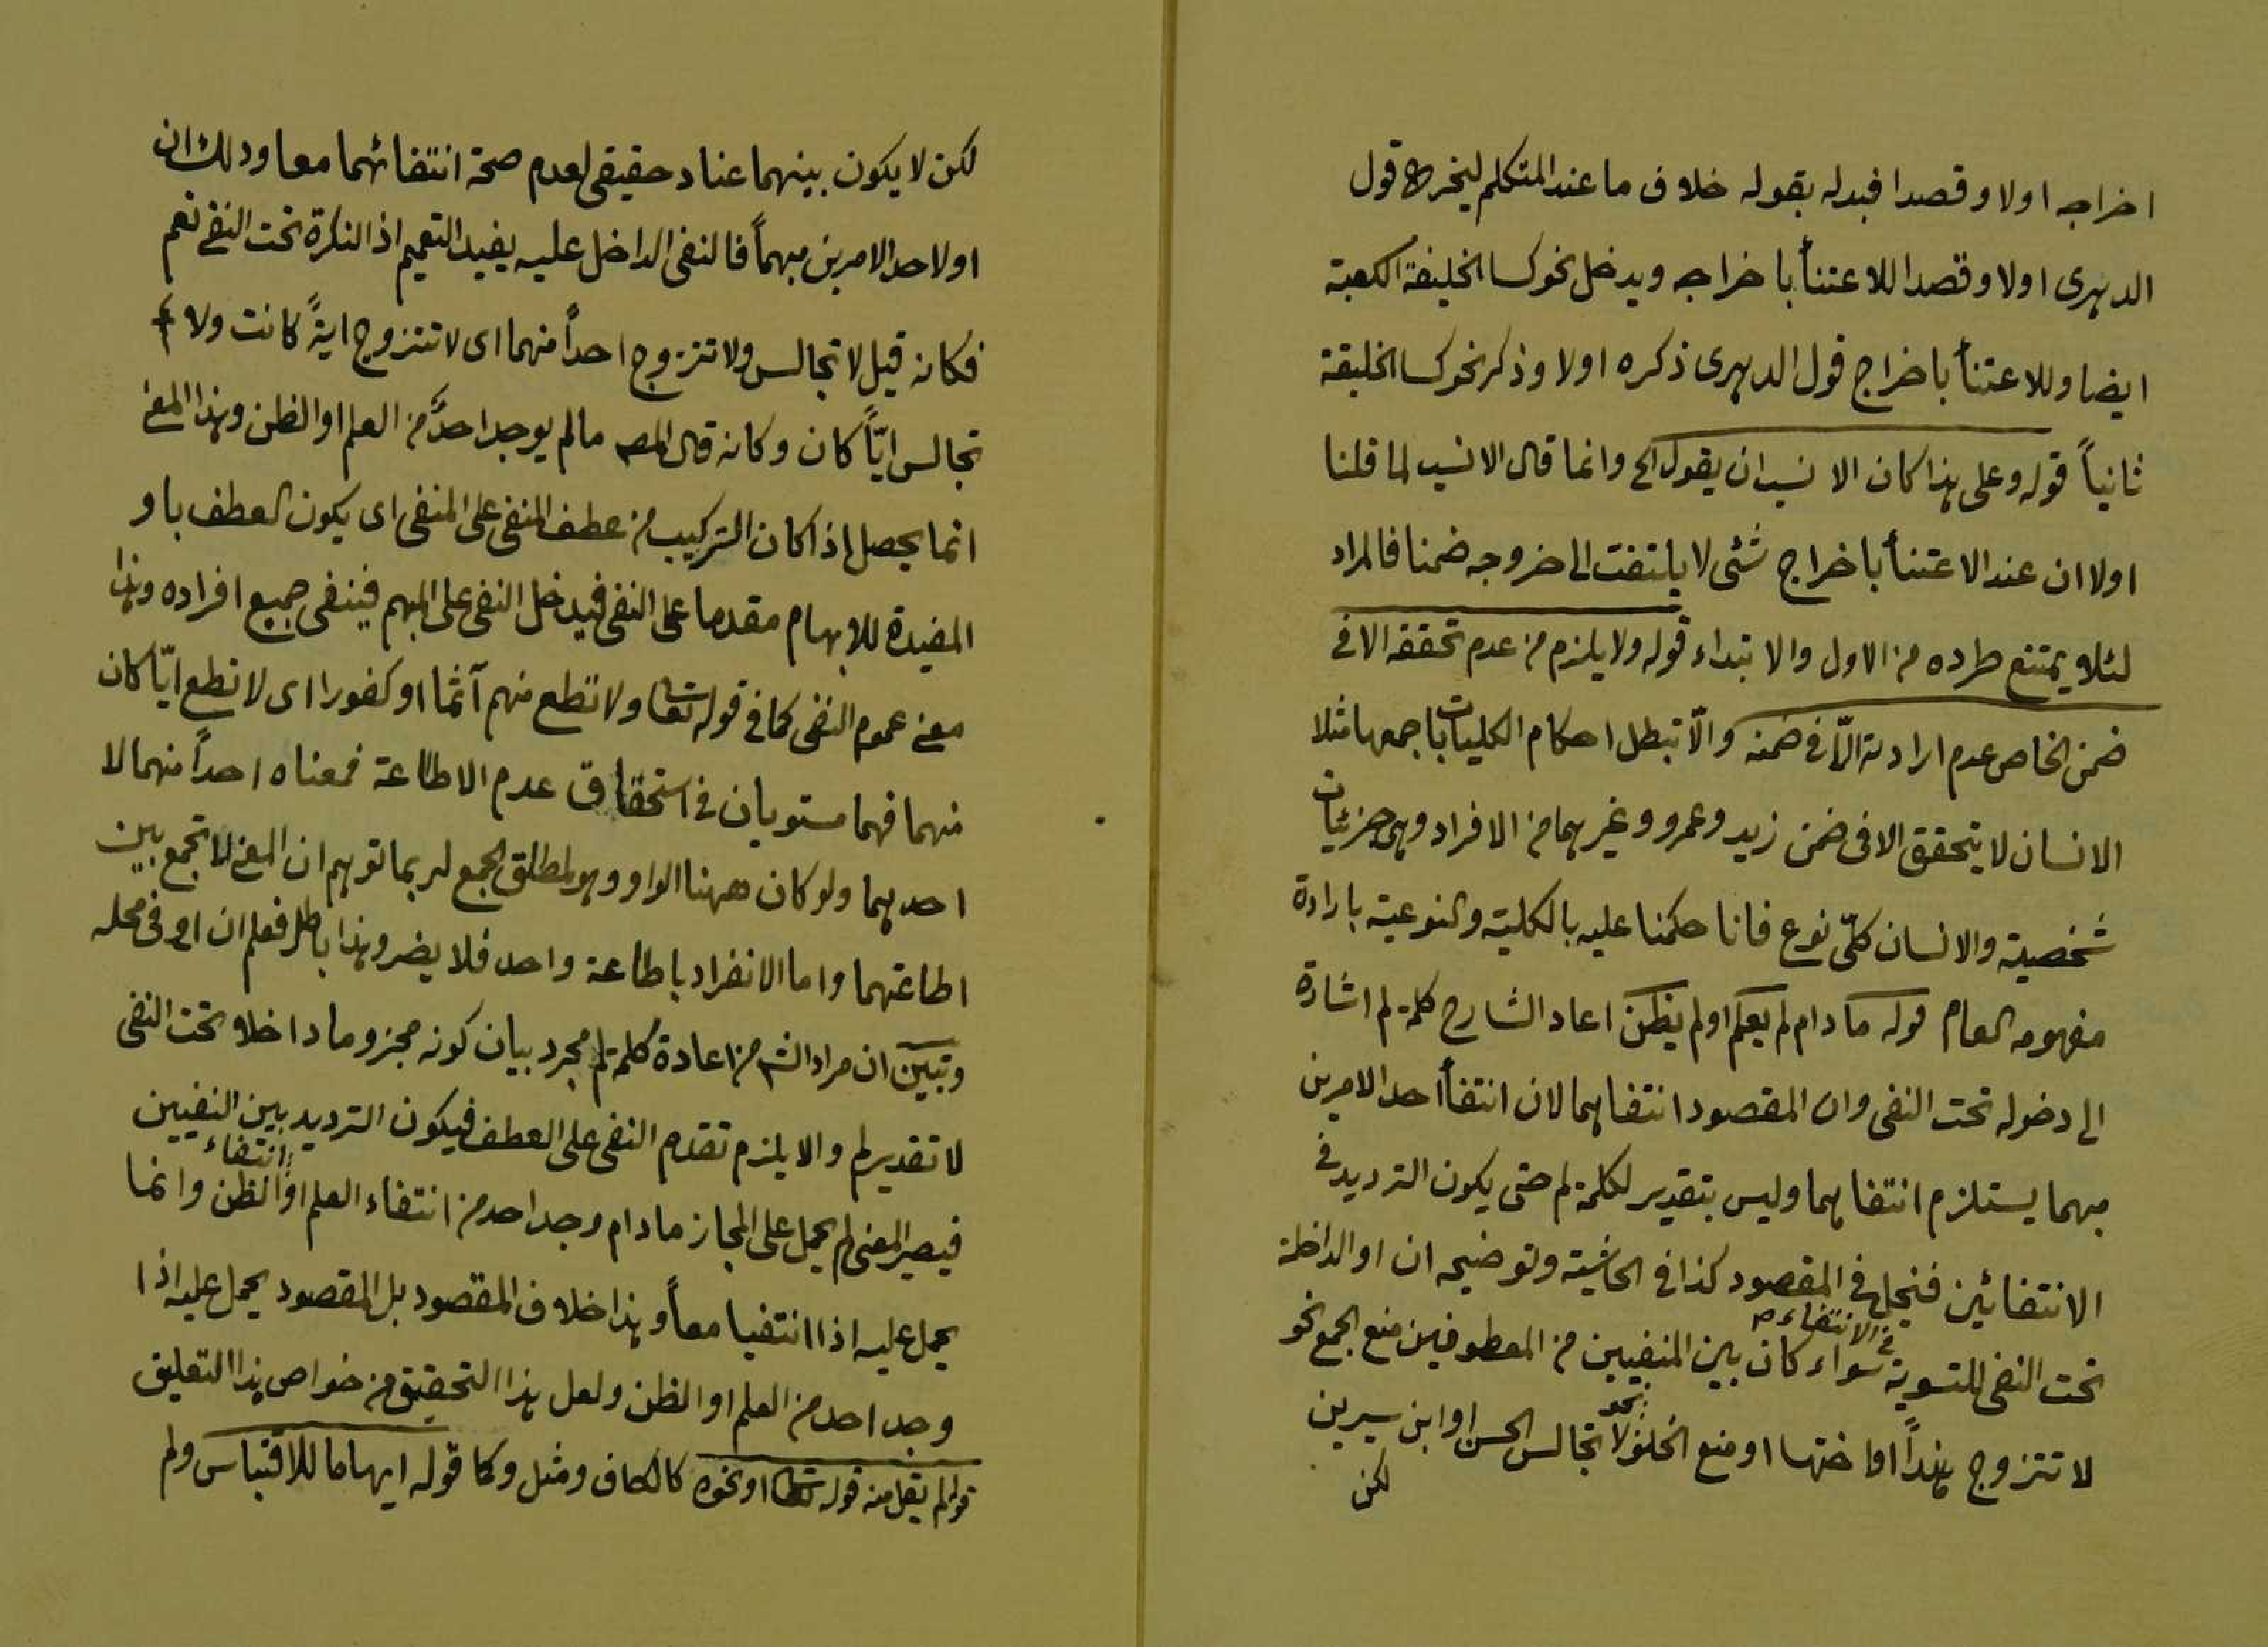 اخراجه اولا وقصدا فبدله بقوله خلاف ما عند المتكلم ليخرج قول
الدهرى اولا وقصدا للاعتنأ باخراجه ويدخل نحو كسا الخليفة الكعبة
ايضا وللاعتنأ باخراج قول الدهرى ذكره اولا وذكر نحو كسا الخليفة
ثانياً قوله وعلى هذا كان الانسب ان يقول الخ وانما قال الانسب لما قلنا
اولا ان عند الاعتنأ باخراج شئى لا يلتفت الى خروجه ضمنا فالمراد
لئلا يمتنع طرده من الاول والابتداء قوله ولا يلزم من عدم تحققه الا فى
ضمن الخاص عدم ارادته الّا فى ضمنه والّا تبطل احكام الكليات باجمعها مثلا
الانسان لا يتحقق الا فى ضمن زيد وعمرو وغيرهما من الافراد وهى جزئيات
شخصية والانسان كلّى نوع فانا حكمنا عليه بالكلية والنوعية بارادة
مفهومه العام قوله ما دام لم يعلم او لم يظن اعاد الشارح كلمة لم اشارة
الى دخوله تحت النفى وان المقصود انتفاهما لان انتفأ احد الامرين
مبهما يستلزم انتفاهما وليس بتقدير لكلمة لم حتى يكون الترديد فى
الانتفائين فيخل فى المقصود كذا فى الحاشية وتوضيحه ان او الداخلة
تحت النفى للتسوية فى الانتفاء سواء كان بين المنفيين من المعطوفين منع الجمع نحو
لا تتزوج هنداً او اختها او منع الخلو نحو لا تجالس الحسن او ابن سيرين
لكن
لكن لا يكون بينهما عناد حقيقى لعدم صحة انتفائهما معا وذلك ان
او لاحد الامرين مبهماً فالنفى الداخل عليه يفيد التعميم اذ النكرة تحت النفى تعم
فكانه قيل لا تجالس ولا تتزوج احداً منهما اى لا تتزوج ايةً كانت ولا
تجالس ايّاً كان وكانه قال المصـ ما لم يوجد احدٌ من العلم او الظن وهذا المعنى
انما يحصل اذا كان التركيب من عطف المنفى على المنفى اى يكون العطف باو
المفيدة للابهام مقدما على النفى فيدخل النفى على المبهم فينفى جميع افراده وهذا
معنى عموم النفى كما فى قوله تعا ولا تطع منهم آثما او كفورا اى لا تطع ايّا كان
منهما فهما مستويان فى استحقاق عدم الاطاعة فمعناه احداً منهما لا
احدهما ولو كان ههنا الواو وهو لمطلق الجمع لربما توهم ان المعنى لا تجمع بين
اطاعتهما واما الانفراد باطاعة واحد فلا يضر وهذا باطل فعلم ان او فى محله
وتبين ان مراد الشـ من اعادة كلمة لم مجرد بيان كونه مجزوما داخلا تحت النفى
لا تقدير لم والا يلزم تقدم النفى على العطف فيكون الترديد بين النفيين
فيصير المعنى لم يحمل على المجاز ما دام وجد احد من انتفاء العلم او انتفاء الظن وانما
يحمل عليه اذا انتفيا معاً وهذا خلاف المقصود بل المقصود يحمل عليه اذا
وجد احد من العلم او الظن ولعل هذا التحقيق من خواص هذا التعليق
قوله لم يقل منه قوله تعا او نحوه كالكاف ومثل وكما قوله ايهاما للاقتباس ولم